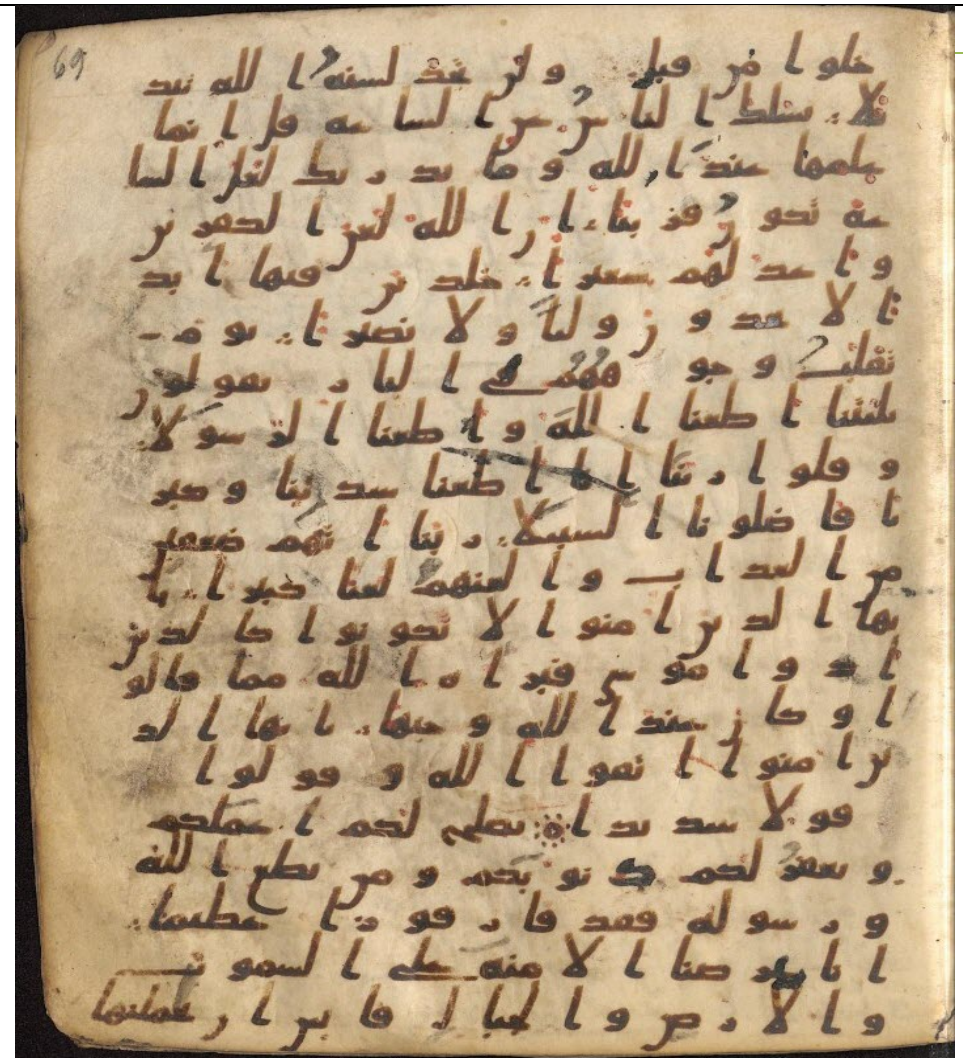 خلوا من قبل ولن تجد لسنة الله تبد
يلا يسئلك الناس عن الساعة قل انما
علمها عند الله وما يدريك لعل السا
عة تكون قريبا ان الله لعن الكفرين
واعد لهم سعيرا خلدين فيها ابد
ا لا يجدون وليا ولا نصيرا يوم
تقلب وجوههم في النار يقولون
يليتنا اطعنا الله واطعنا الرسولا
وقلوا ربنا انا اطعنا سدتنا وكبر
نا فاضلونا السبيلا ربنا اتهم ضعفين
من العذاب والعنهم لعنا كبيرا يا
يها الذين امنوا لا تكونوا كالذين
اذوا موسى فبراه الله مما قالو
ا وكان عند الله وجيها يايها الذ
ين امنوا اتقوا الله وقولوا
قولا سديدا يصلح لكم اعملكم
ويغفر لكم ذنوبكم ومن يطع الله
ورسوله فقد فاز فوزا عظيما
انا عرضنا الامنة على السموت
والارض والجبال فابين ان يحملنها
69